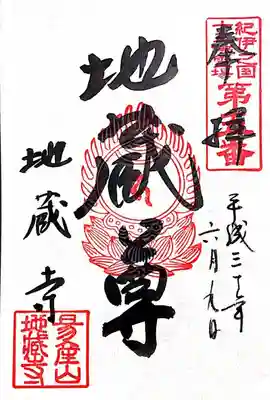 奉拝
紀伊之国
十三仏霊場
第五番
平成三十年
六月九日
地蔵尊
地蔵寺
地蔵寺